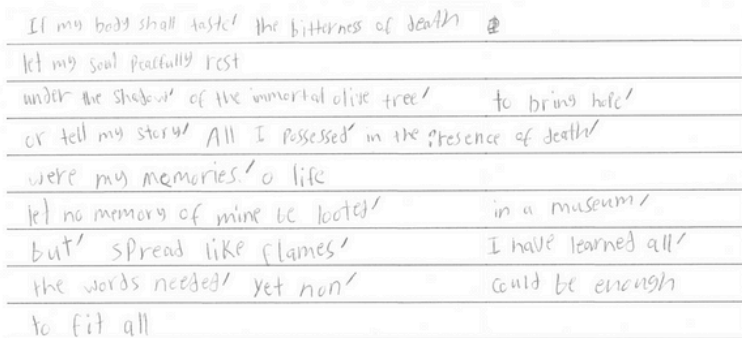 If my body shall taste/ the bitterness of death
let my soul peacefully rest
under the shadow/ of the immortal olive tree/ to bring hope/
or tell my story/ All I possessed/ in the presence of death/
were my memories./ o life
let no memory of mine be looted/ in a museum/
but/ spread like flames/ I have learned all/
the words needed/ yet non/ could be enough
to fit all